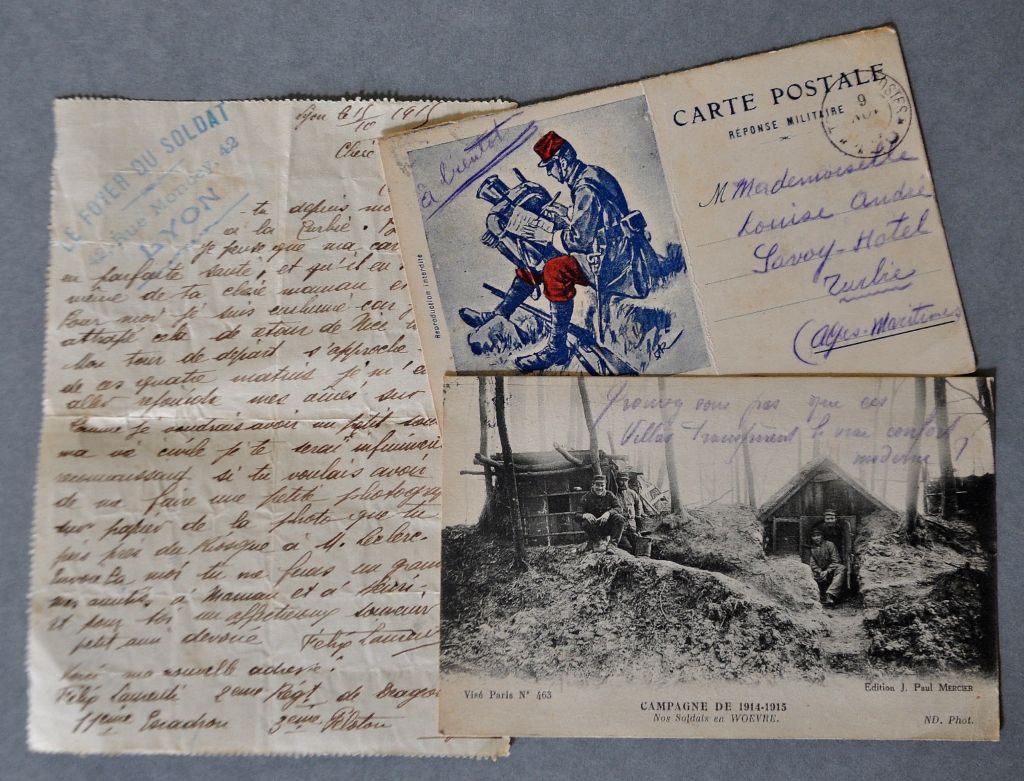 LE FOYER DU SOLDAT
42, Rue Moncey, 42
LYON
Lyon le 15/10 1915
Chère
ta depuis mo
a la Turbie.
Je pense que ma car
en parfaite santé, et qu'il en
même de ta chère maman et
Pour moi je suis enrhumé car j'
attrapé cela de retour de Nice
Mon tour de départ s'approche
de ces quatre matins je m'e
aller rejoindre mes ainés sur
Comme je voudrais avoir un petit sou
ma vie civile je te serai infiniment
reconnaissant si tu voulais avoir
de me faire une petite photograp
sur papier de la photo que tu
pris près du Kiosque à M. Leclerc.
Envoie la moi tu me feras un grand
mes amitiés à Maman et à
et pour toi un affectueux souvenir
petit ami dévoué
Félix Laurenti
Voici ma nouvelle adresse:
Félix Laurenti 2ème Régt de Dragons
11ème Escadron 3ème Peloton
à bientôt
Reproduction Interdite
CARTE POSTALE
RÉPONSE MILITAIRE
9
M Mademoiselle
Louise André
Savoy-Hotel
Turbie
(Alpes-Maritimes)
Trouvez vous pas que ces
Villas transpirent le vrai confort
moderne?
Visé Paris N° 463
Edition J. Paul MERCIER
CAMPAGNE DE 1914-1915
Nos Soldats en WOEVRE.
ND. Phot.